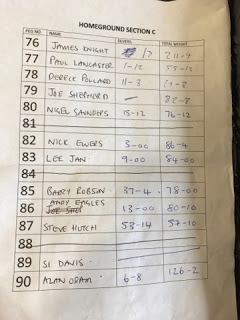 HOMEGROUND SECTION C
PEG NO. NAME SILVERS TOTAL WEIGHT
76 JAMES KNIGHT 211-4
77 PAUL LANCASTER 1-12 55-12
78 DERECK POLLARD 11-8
79 JOE SHEPHERD 82-8
80 NIGEL SAUNDERS 15-12 76-12
81
82 NICK EWERS 3-00 86-4
83 LEE JAN 9-00 84-00
84
85 BARRY ROBSON 37-4 78-00
86 ANDY EAGLES 13-00 80-10
87 STEVE HUTCH 53-14 57-10
88
89 SI DAVIS
90 ALAN ORAM 6-8 126-2